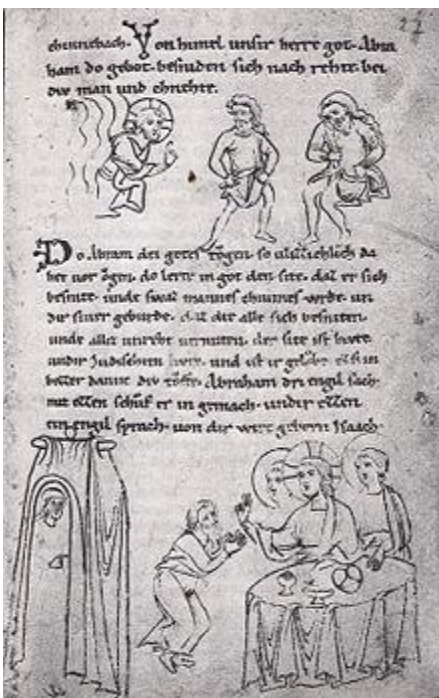 27
chunebach. Von himel unsir herre got. Abra
ham do gebot. besniden sich nach rehte. bei
diu man und chnehte.
Do Abram dei gotes tögen. so
her vor ögen. do lerte in got den site. daz er sich
besnite. unde swaz mannes chunnes
siner geburde. daz die alle sich besniten.
unde allez vermiten. der site ist hiute
undir Judischem liute. und ist er
bezzer danne diu töffe. Abraham dri engil sach.
mit ellen schüf er in gemach. undir ellen
ein engil sprach. von dir wirt geborn Isaach.